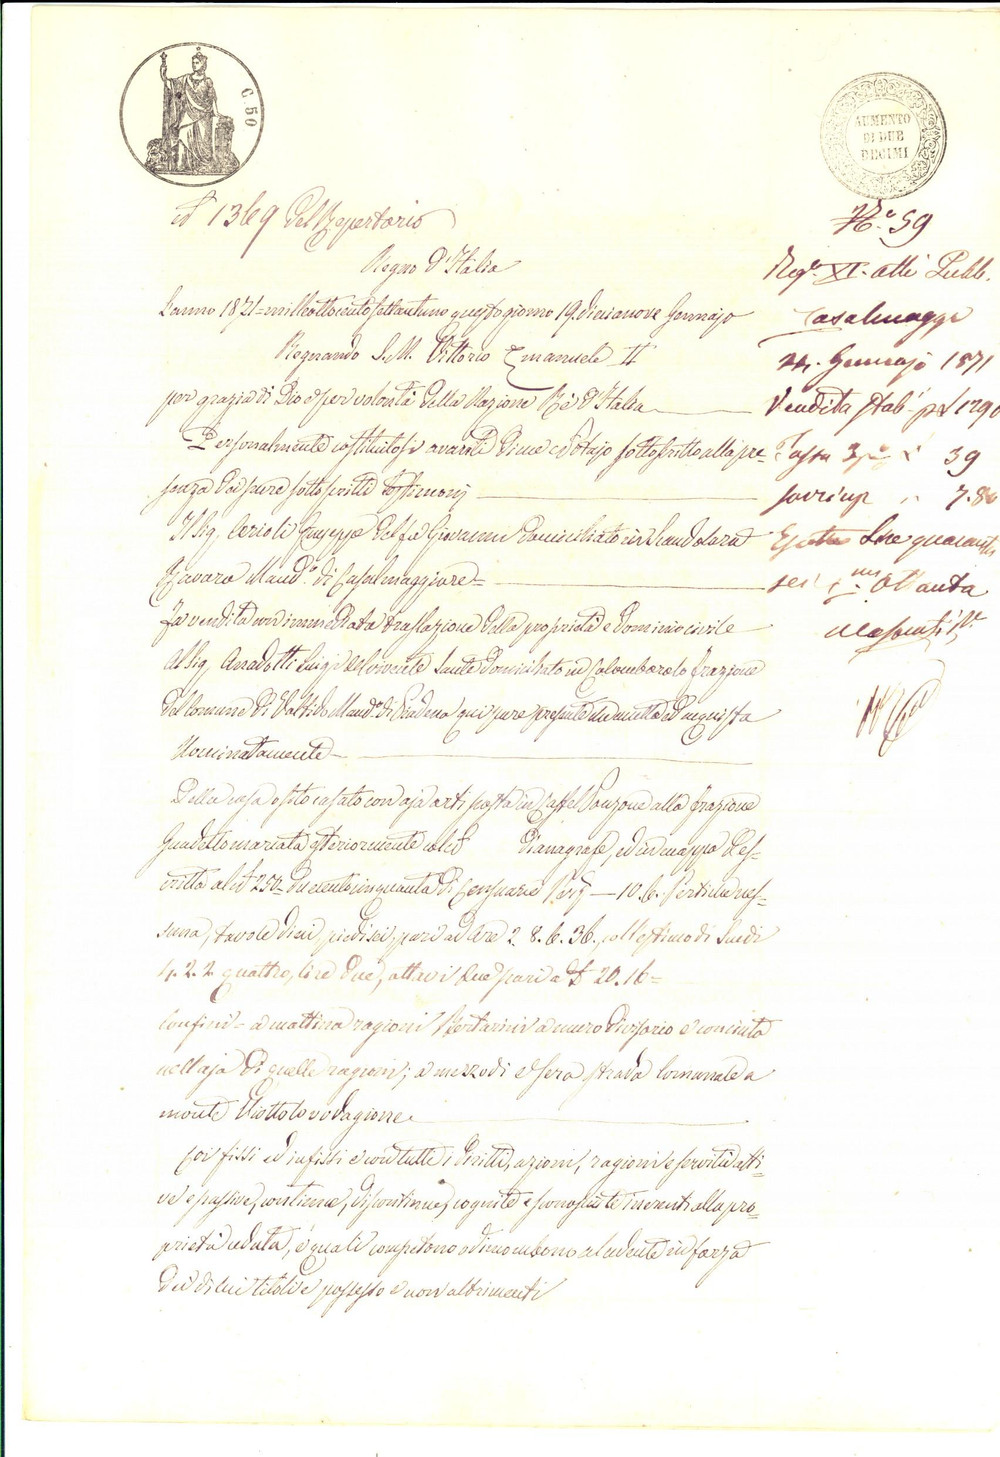 C. 50
AUMENTO
DI DUE
DECIMI
N° 1369 del Repertorio
Regno d'Italia
L'anno 1871 = milleottocentosettantuno questo giorno 19. diecianove Gennajo
Regnando S. M. Vittorio Emanuele II
per grazia di Dio e per volontà della Nazione Rè d'Italia
Personalmente costituitosi avanti di me Notajo sottoscritto alla pre-
senza dei pure sottoscritti testimonj
Il Sig. Cerioli Giuseppe del fu Giovanni domiciliato in Scandolara
Ravara Mand.° di Casalmaggiore =
Fa vendita ed immediata traslazione della proprietà e dominio civile
Al Sig. Anadotti Luigi del vivente Sante domiciliato in Colombarolo frazione
del Comune di Voltido Mand.° di Piadena qui pure presente che accetta ed acquista
Nominatamente
Della casa con aja posta in Castel Ponzone alla frazione
marcata esteriormente col N° di anagrafe, ed in mappa des-
critta al N° 250 = duecentocinquanta di Censuarie Per. — 10. 6. Pertiche nes-
suna, tavole dieci, piedi sei, pari ad Are 2. 8. 6. 36., coll'estimo di Scudi
4. 2. 2 quattro, lire due, ottavi due pari a £ 20. 16 =
Confini = a mattina ragioni Bertarini a muro divisorio e con
nell'aja di quelle ragioni; a mezzodì e sera strada Comunale a
monte Viottolo
Coi fissi ed infissi e con tutti i diritti, azioni, ragioni e servitù atti-
ve e passive, continue, discontinue, cognite e sconosciute inerenti alla pro-
prietà ceduta, e quali competono ed incombono al cedente in forza
dei di lui titoli e possesso e non altrimenti
N.° 59
Reg.° XI. atti Pubb.
Casalmaggi
24. Gennajo 1871
Vendita Stab. p £ 1290
Tassa 3 p. £ 39
sovrimp „ 7.80
Esatte Lire quaranta
sei c.mi Ottanta